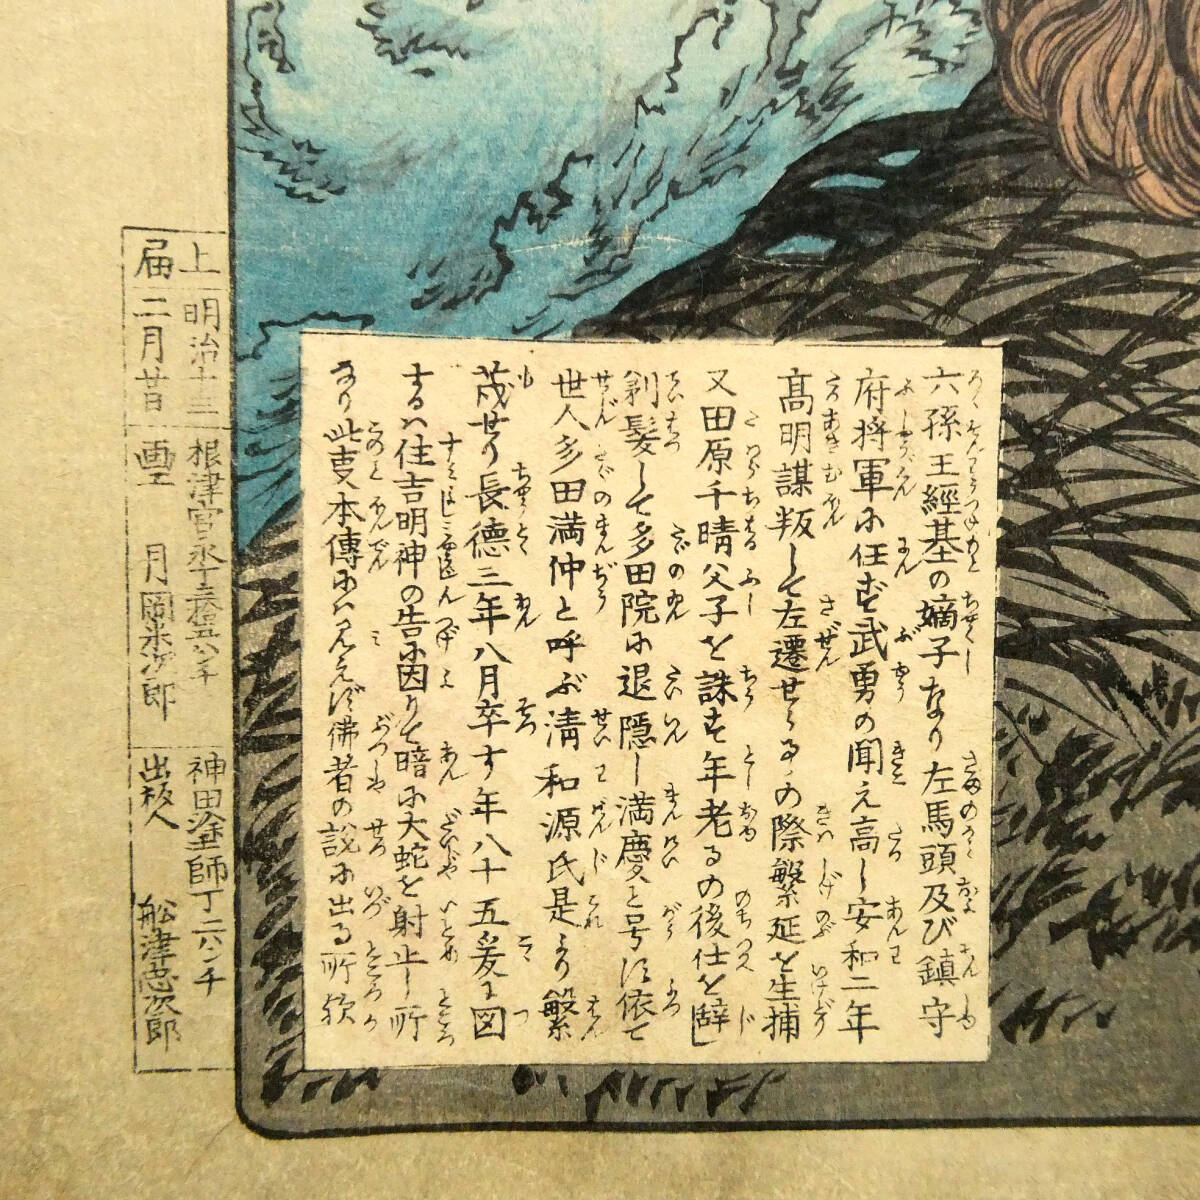 六孫王經基の嫡子なり左馬頭及び鎮守
府将軍に任ず武勇の聞え高し安和二年
高明謀叛して左遷せらるゝの際繁延を生捕
又田原千晴父子を誅す年老るの後仕を辞し
剃髪して多田院に退隠し満慶と号す依て
世人多田満仲と呼ぶ清和源氏是より繁
茂せり長徳三年八月卒す年八十五爰に図
するハ住吉明神の告に因りて暗に大蛇を射止し所
なり此事本傳にハ見えず佛者の説に出る所歟
上 明治十三
届 二月廿日
根津宮永丁三拾五バンチ
畫工 月岡米次郎
神田塗師丁二バンチ
出板人 舩津忠次郎